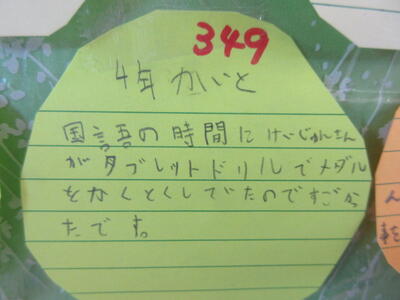 349
4年 かいと
国語の時間にけいじゅんさん
がタブレットドリルでメダル
をかくとくしていたのですごかっ
たです。